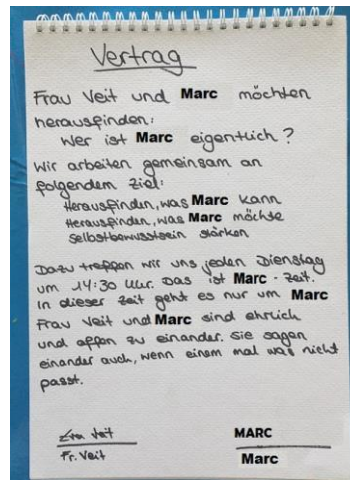 Vertrag
Frau Veit und Marc möchten
herausfinden:
Wer ist Marc eigentlich?
Wir arbeiten gemeinsam an
folgendem Ziel:
Herausfinden, was Marc kann
Herausfinden, was Marc möchte
Selbstbewusstsein stärken
Dazu treffen wir uns jeden Dienstag
um 14:30 Uhr. Das ist Marc - Zeit.
In dieser Zeit geht es nur um Marc
Frau Veit und Marc sind ehrlich
und offen zu einander. Sie sagen
einander auch, wenn einem mal was nicht
passt.
Veit MARC
Fr. Veit Marc